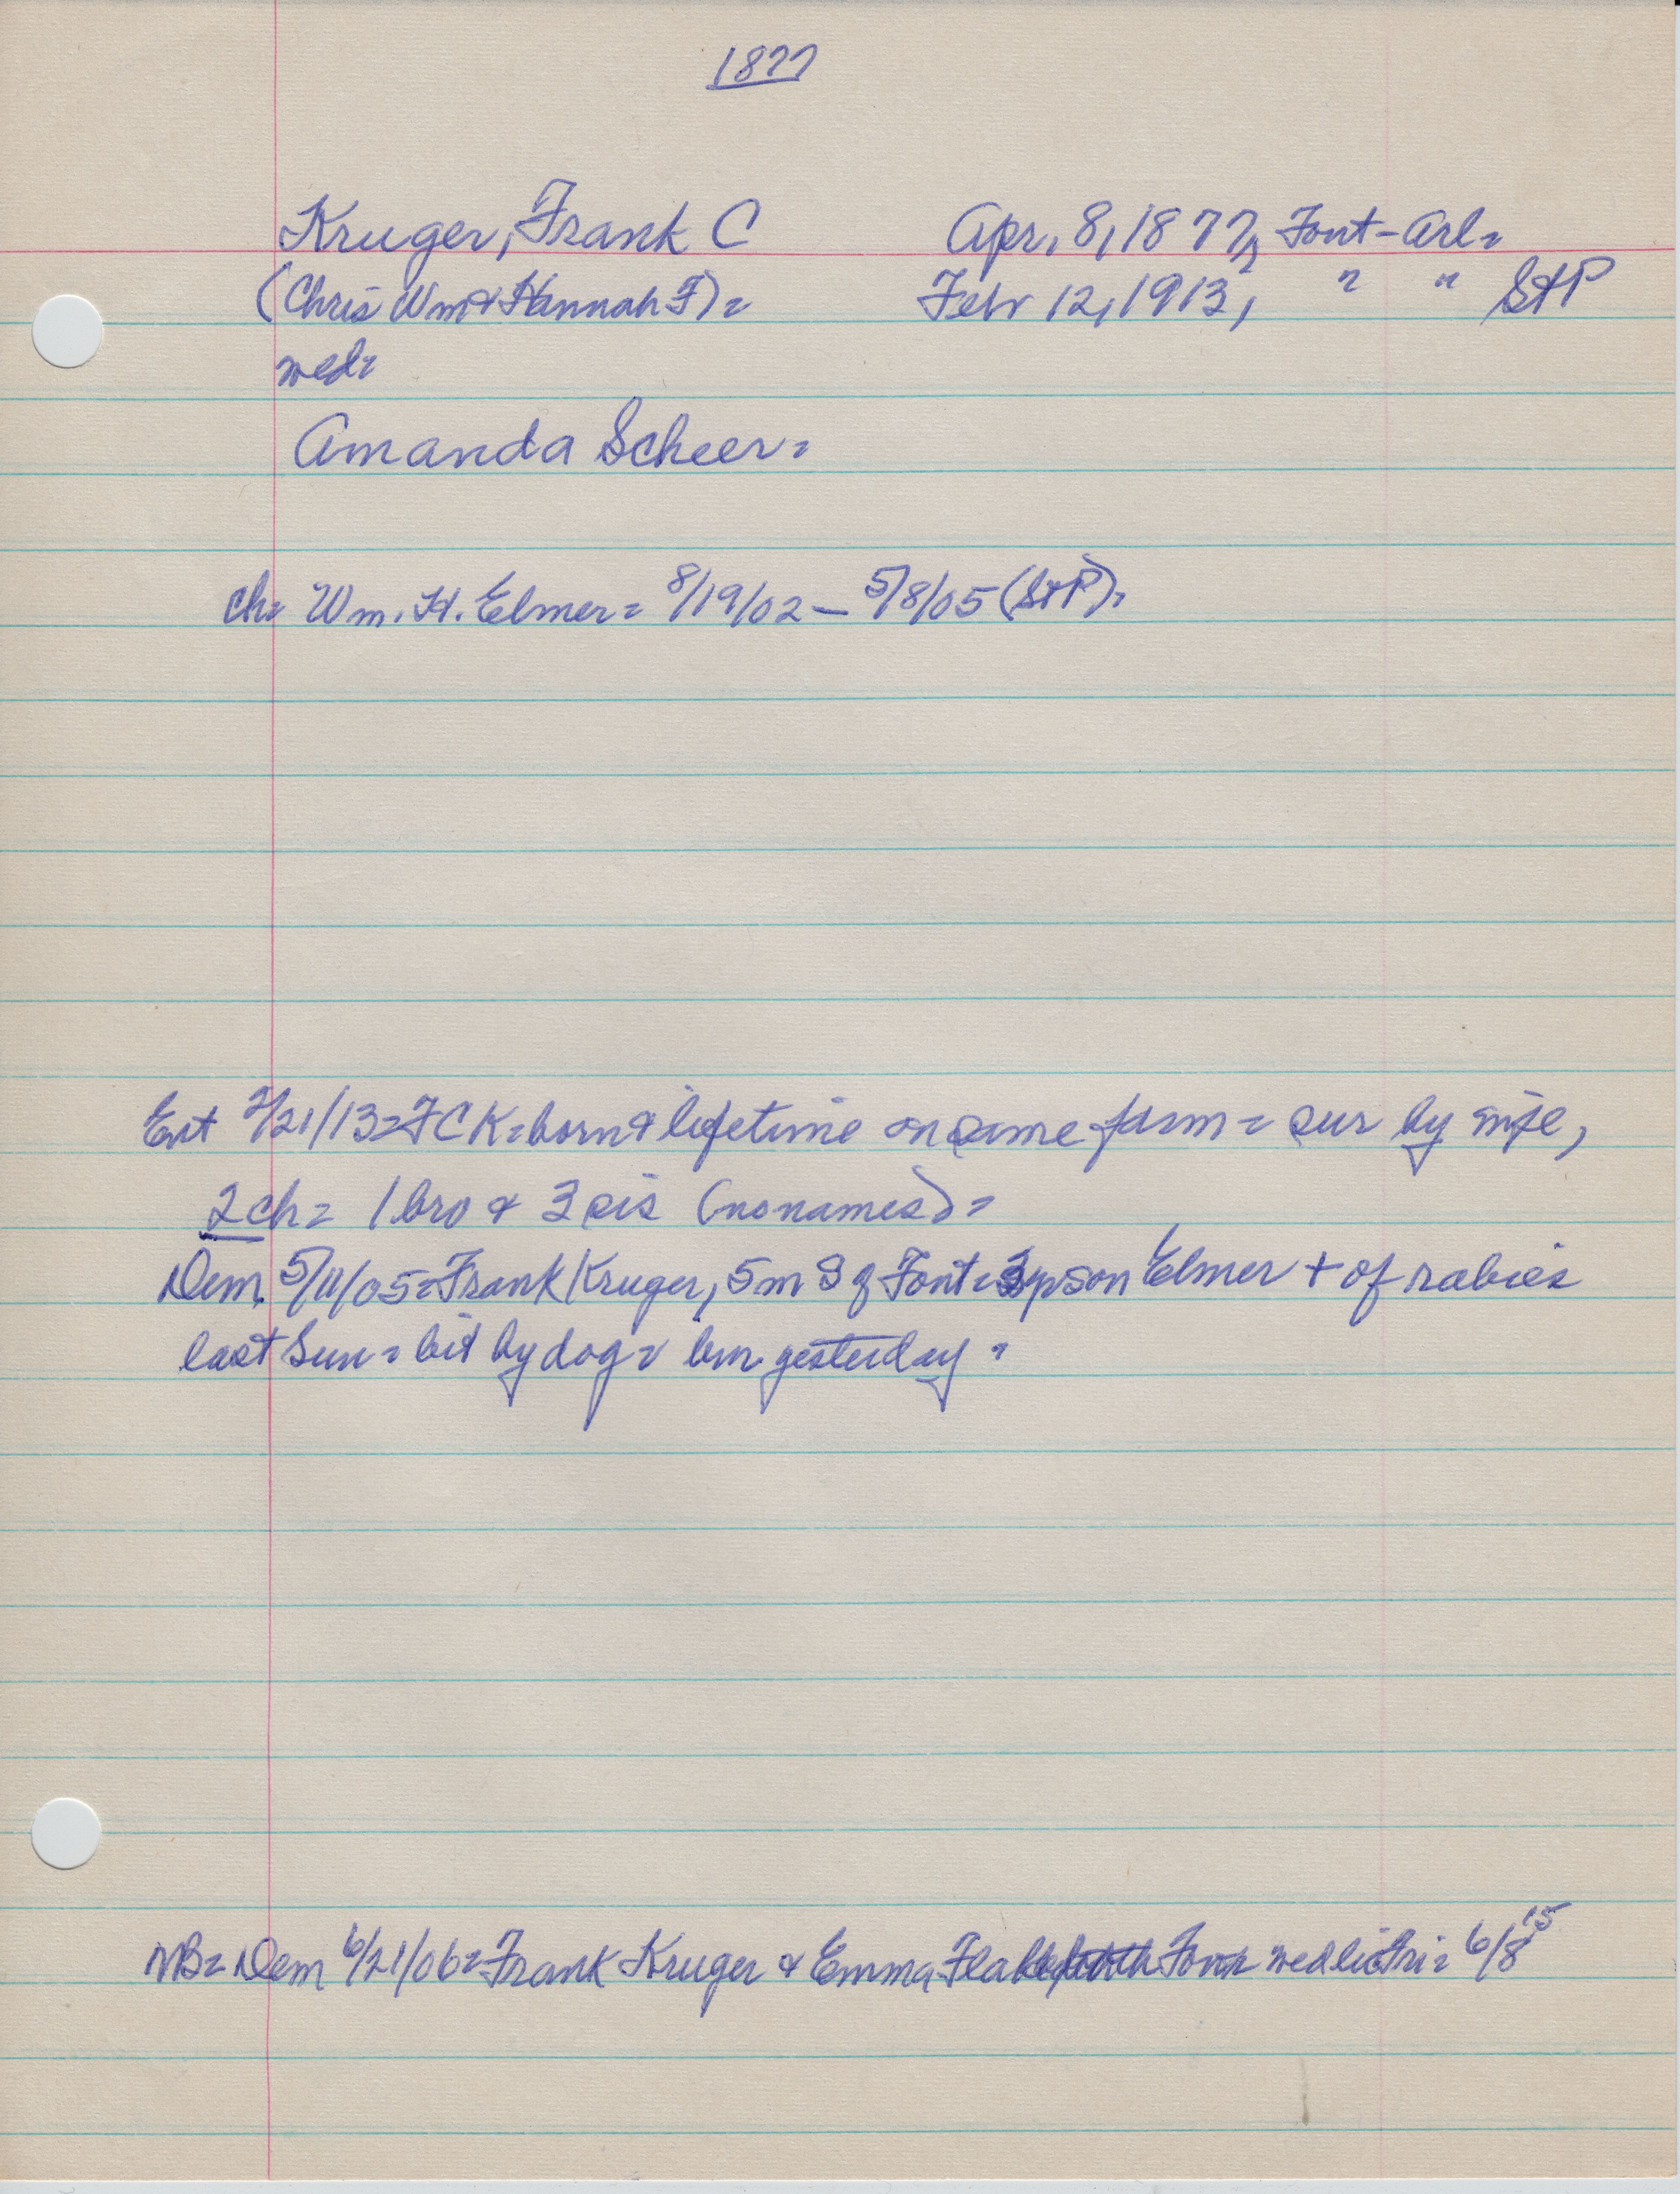 1877
Kruger, Frank C Apr, 8, 1877, Font-Arl=
(Chris Wm & Hannah F)= Febr 12, 1913, " " StP
wed=
Amanda Scheer=
ch= Wm. H. Elmer= 8/19/02 – 5/8/05 (StP)=
Ent 2/21/13= FCK= born & lifetime on same farm= sur by wife,
2 ch= 1 bro & 3 sis (no names)=
Dem 5/11/05= Frank Kruger, 5 m S of Font= 3 y son Elmer + of rabies
last Sun= bit by dog= bur yesterday=
NB= Dem 6/21/06= Frank Kruger & Emma wed lic Fri= 6/8 15